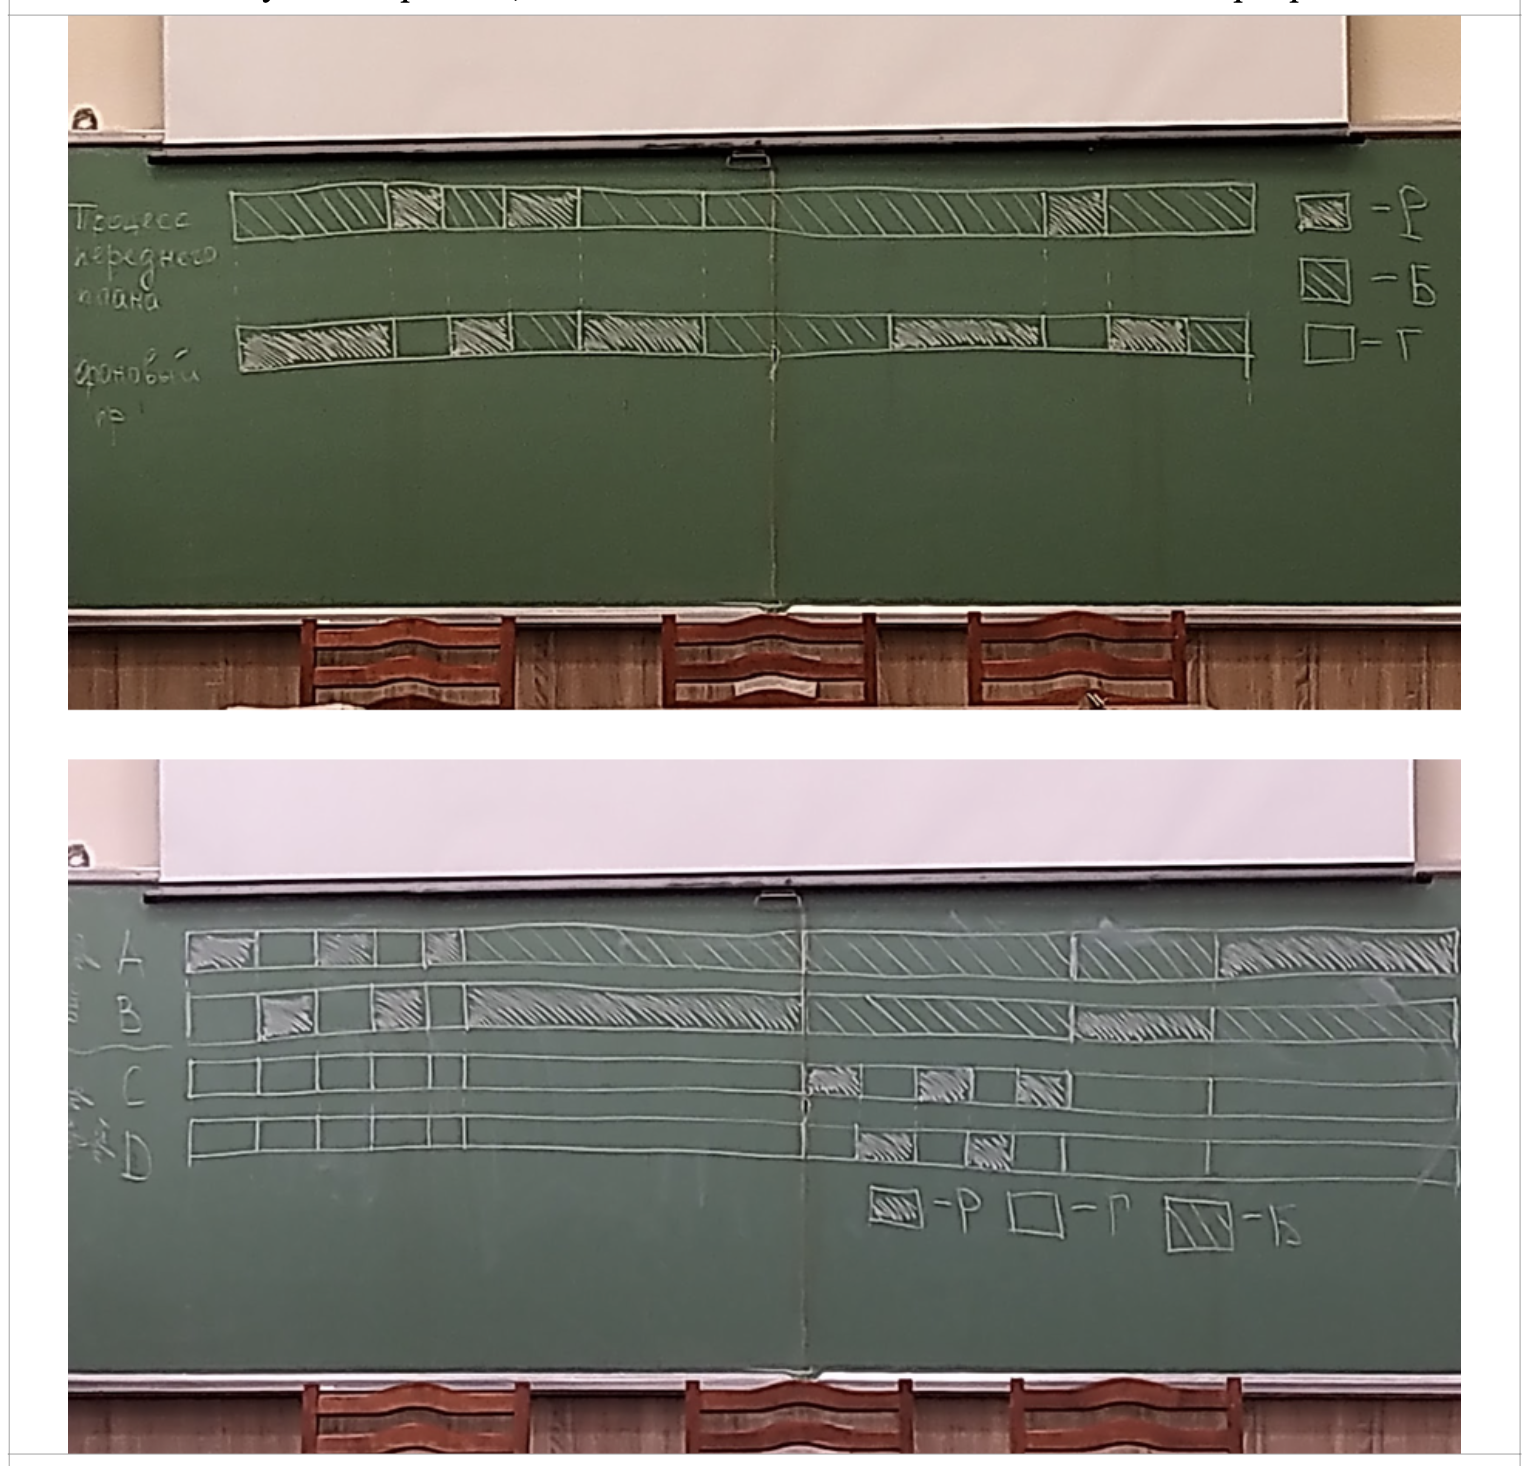 Процесс
переднего
плана
фоновый
пр
- Р
- Б
- Г
A
B
C
D
- Р
- Г
- Б